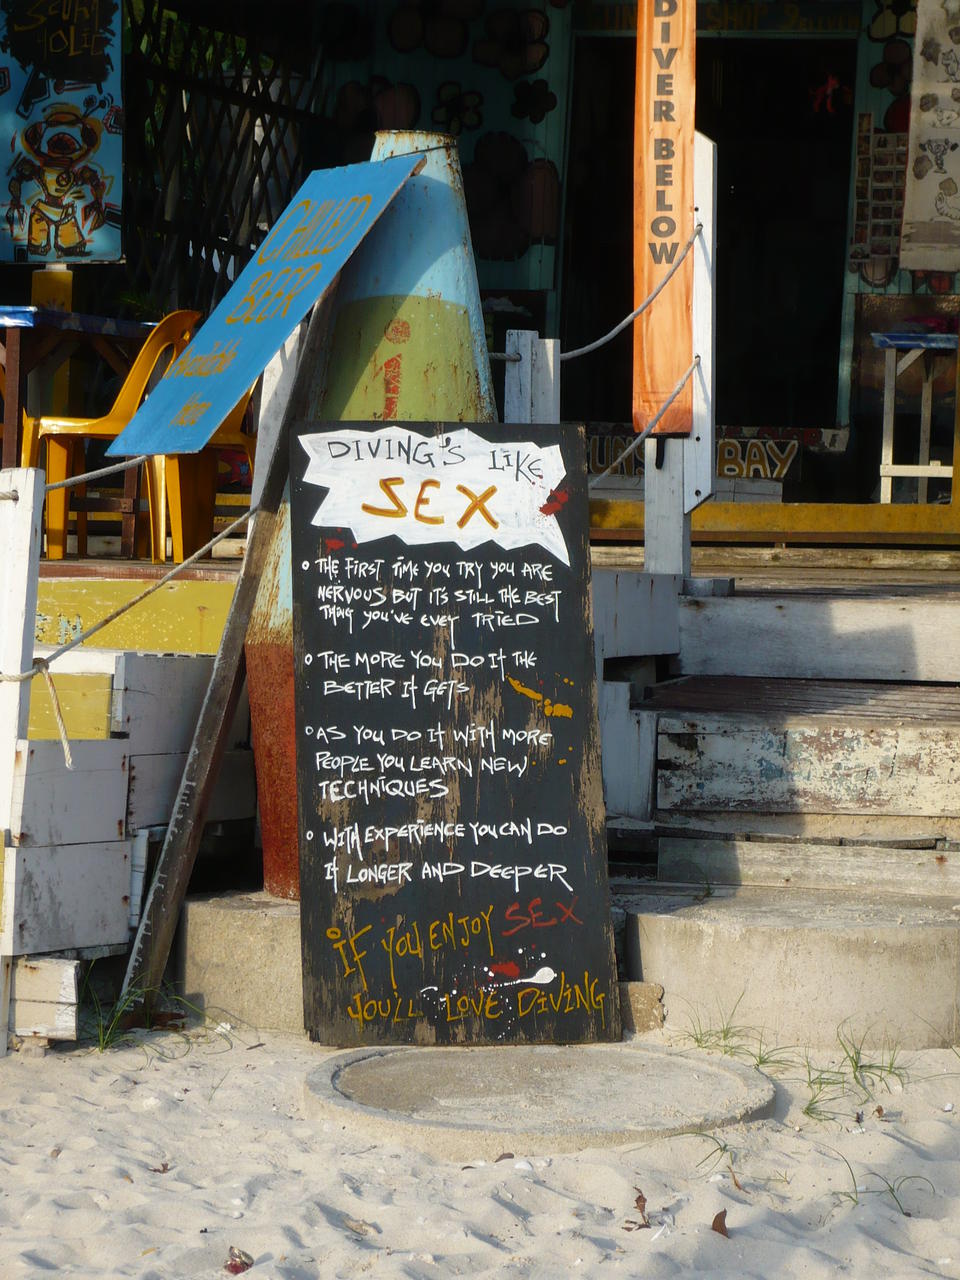 SCUBA
HOLIC
DIVER BELOW
CHILLED
BEER
Available
Here
BAY
DIVING'S LIKE
SEX
THE FIRST TIME YOU TRY YOU ARE
NERVOUS BUT IT'S STILL THE BEST
THING YOU'VE EVEY TRIED
THE MORE YOU DO IT THE
BETTER IT GETS
AS YOU DO IT WITH MORE
PEOPLE YOU LEARN NEW
TECHNIQUES
WITH EXPERIENCE YOU CAN DO
IT LONGER AND DEEPER
IF YOU ENJOY SEX
YOU'LL LOVE DIVING